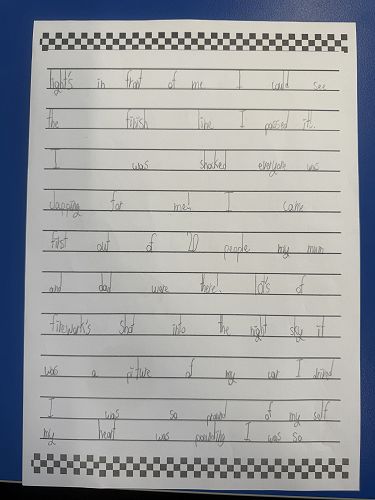 light's in front of me I could see
the finish line I passed it.
I was shocked everyone was
clapping for me! I came
first out of 20 people my mum
and dad were there! lot's of
firework's shot into the night sky it
was a picture of my car I drived
I was so proud of my self
my heart was pounding I was so